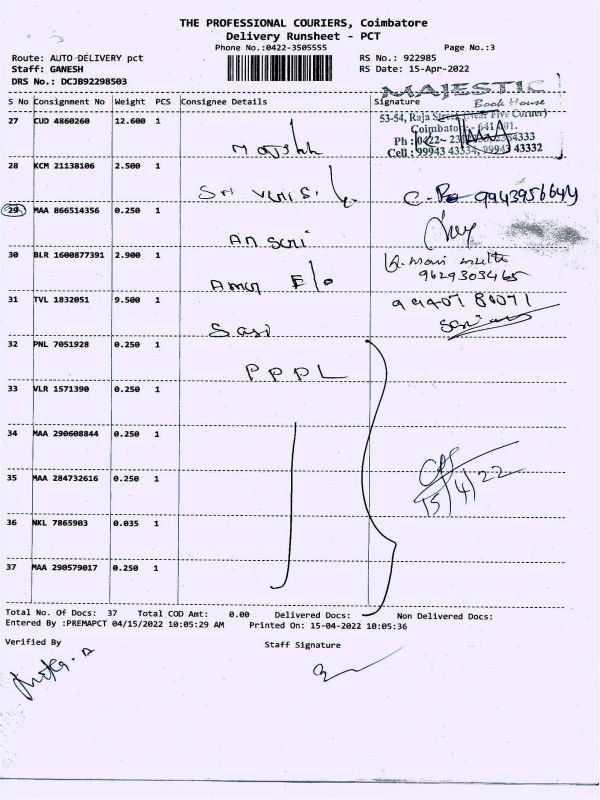 THE PROFESSIONAL COURIERS, Coimbatore
Delivery Runsheet - PCT
Phone No.:0422-3505555
Page No.:3
Route: AUTO DELIVERY pct
RS No.: 922985
Staff: GANESH
RS Date: 15-Apr-2022
DRS No.: DCJB92298503
MAJESTIC
Book House
S No Consignment No Weight PCS Consignee Details Signature
53-54, Raja Street (Near Five Corner)
Coimbatore 641 001.
27 CUD 4860260 12.600 1
Cell : 99943 43334, 99943 43332
28 KCM 21138106 2.500 1
9943956644
29 MAA 866514356 0.250 1
Ansari
30 BLR 1600877391 2.900 1
9629303465
31 TVL 1832051 9.500 1
Sasi
32 PNL 7051928 0.250 1
PPPL
33 VLR 1571390 0.250 1
34 MAA 290608844 0.250 1
35 MAA 284732616 0.250 1
15/4/22
36 NKL 7865903 0.035 1
37 MAA 290579017 0.250 1
Total No. Of Docs: 37 Total COD Amt: 0.00 Delivered Docs: Non Delivered Docs:
Entered By :PREMAPCT 04/15/2022 10:05:29 AM Printed On: 15-04-2022 10:05:36
Verified By Staff Signature